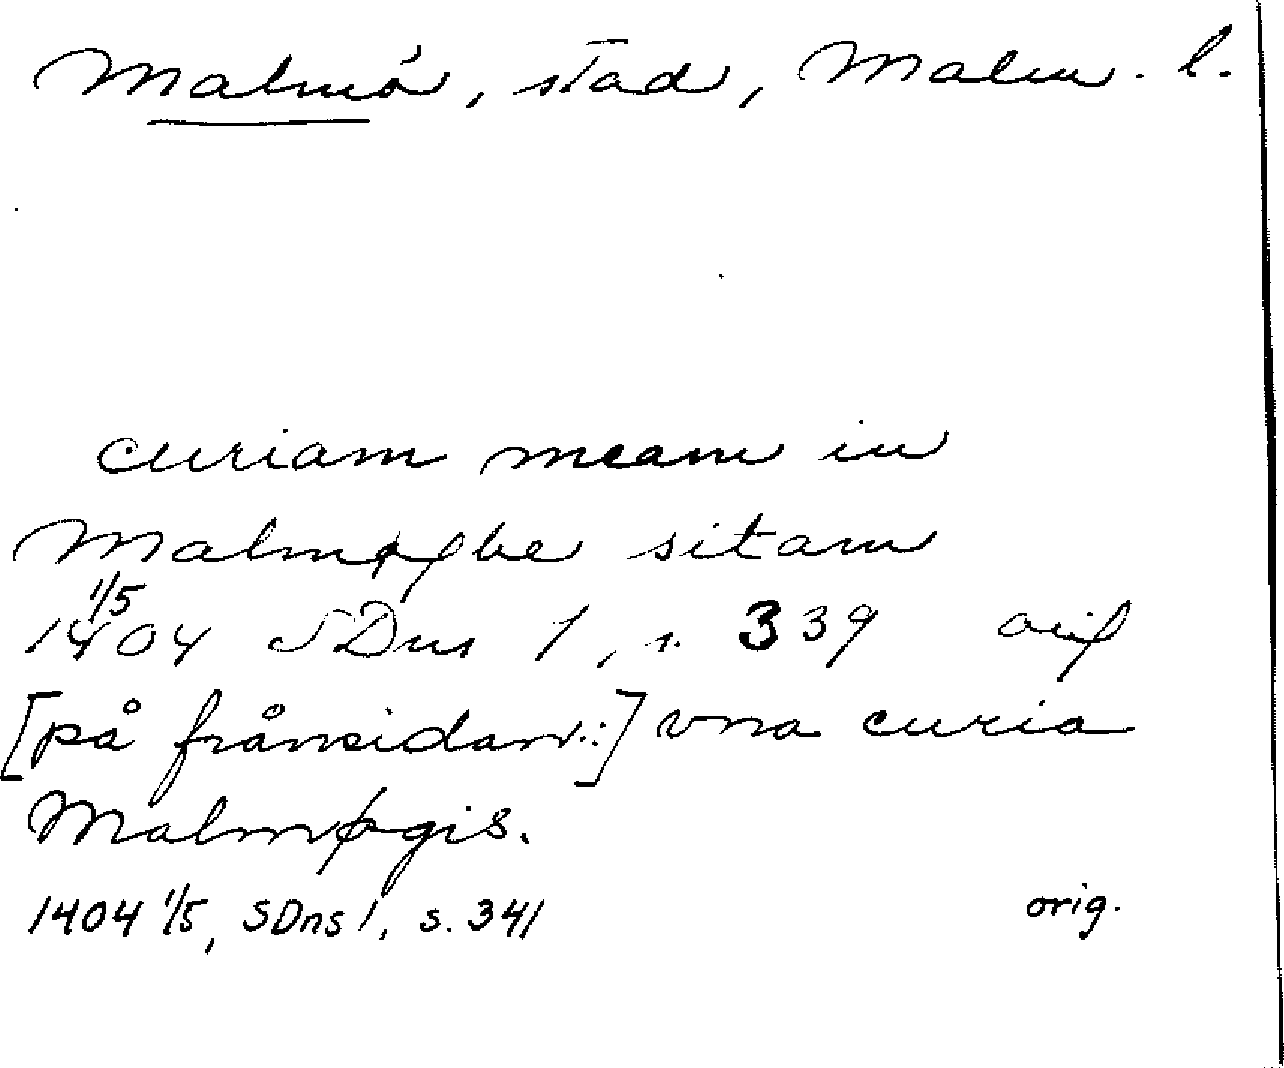 Malmö, stad, Malm. l.
curiam meam in
Malmøghe sitam
1/5
1404 SDns 1, s. 339 orig
[på frånsidan:] vna curia
Malmøgis.
1404 1/5, SDns 1, s. 341 orig.